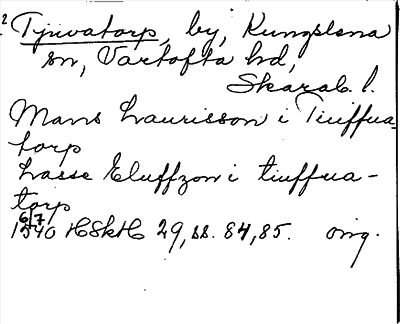 2 Tjuvatorp, by, Kungslena
sn, Vartofta hd,
Skarab. l.
Mans Laurisson i Tiuffua-
torp
Lasse Eluffzon i tiuffua-
torp
6/7
1540 HSkH 29, ss. 84, 85. orig.